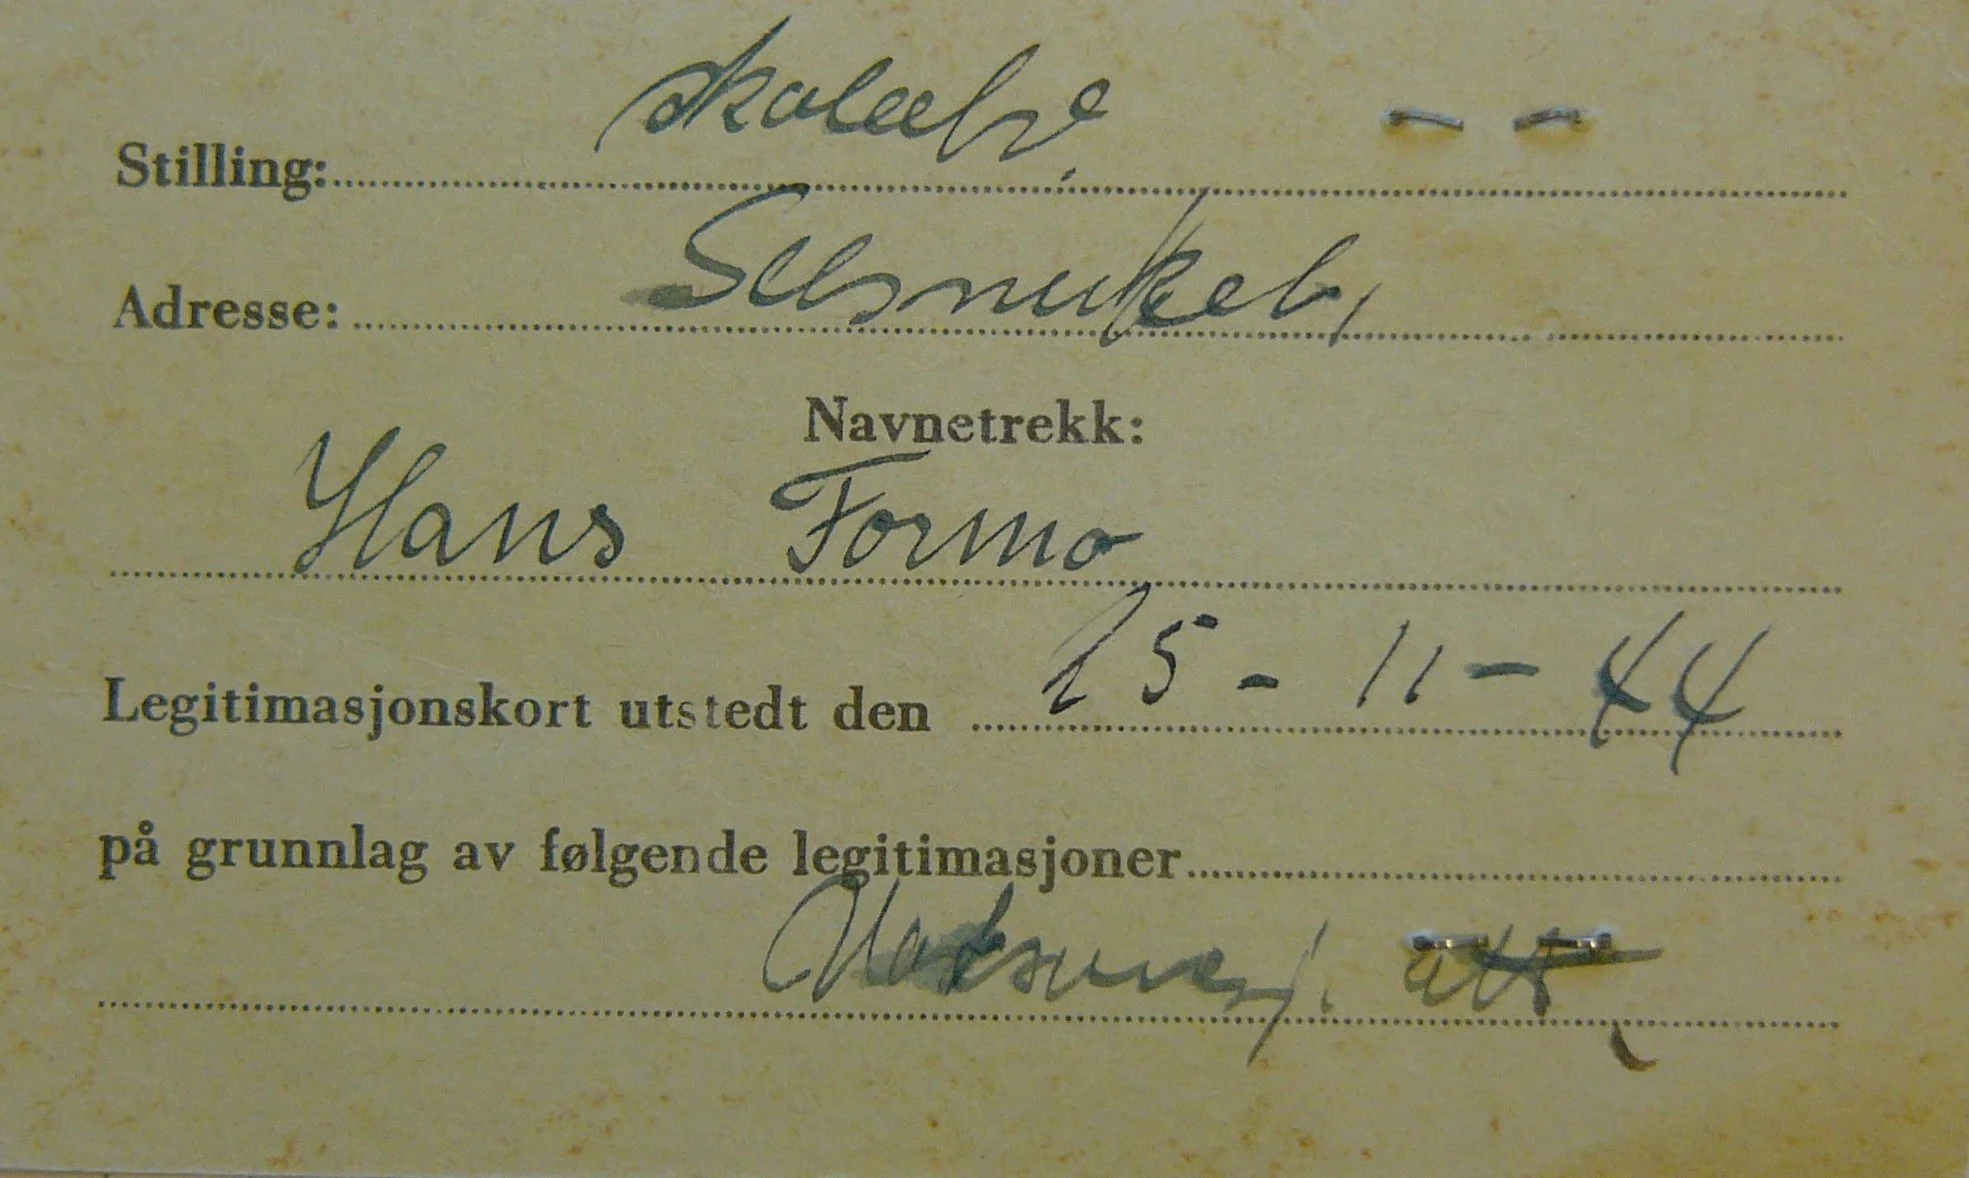 Stilling: skoleelev.
Adresse:
Navnetrekk:
Hans Formo
Legitimasjonskort utstedt den 25-11-44
på grunnlag av følgende legitimasjoner
att